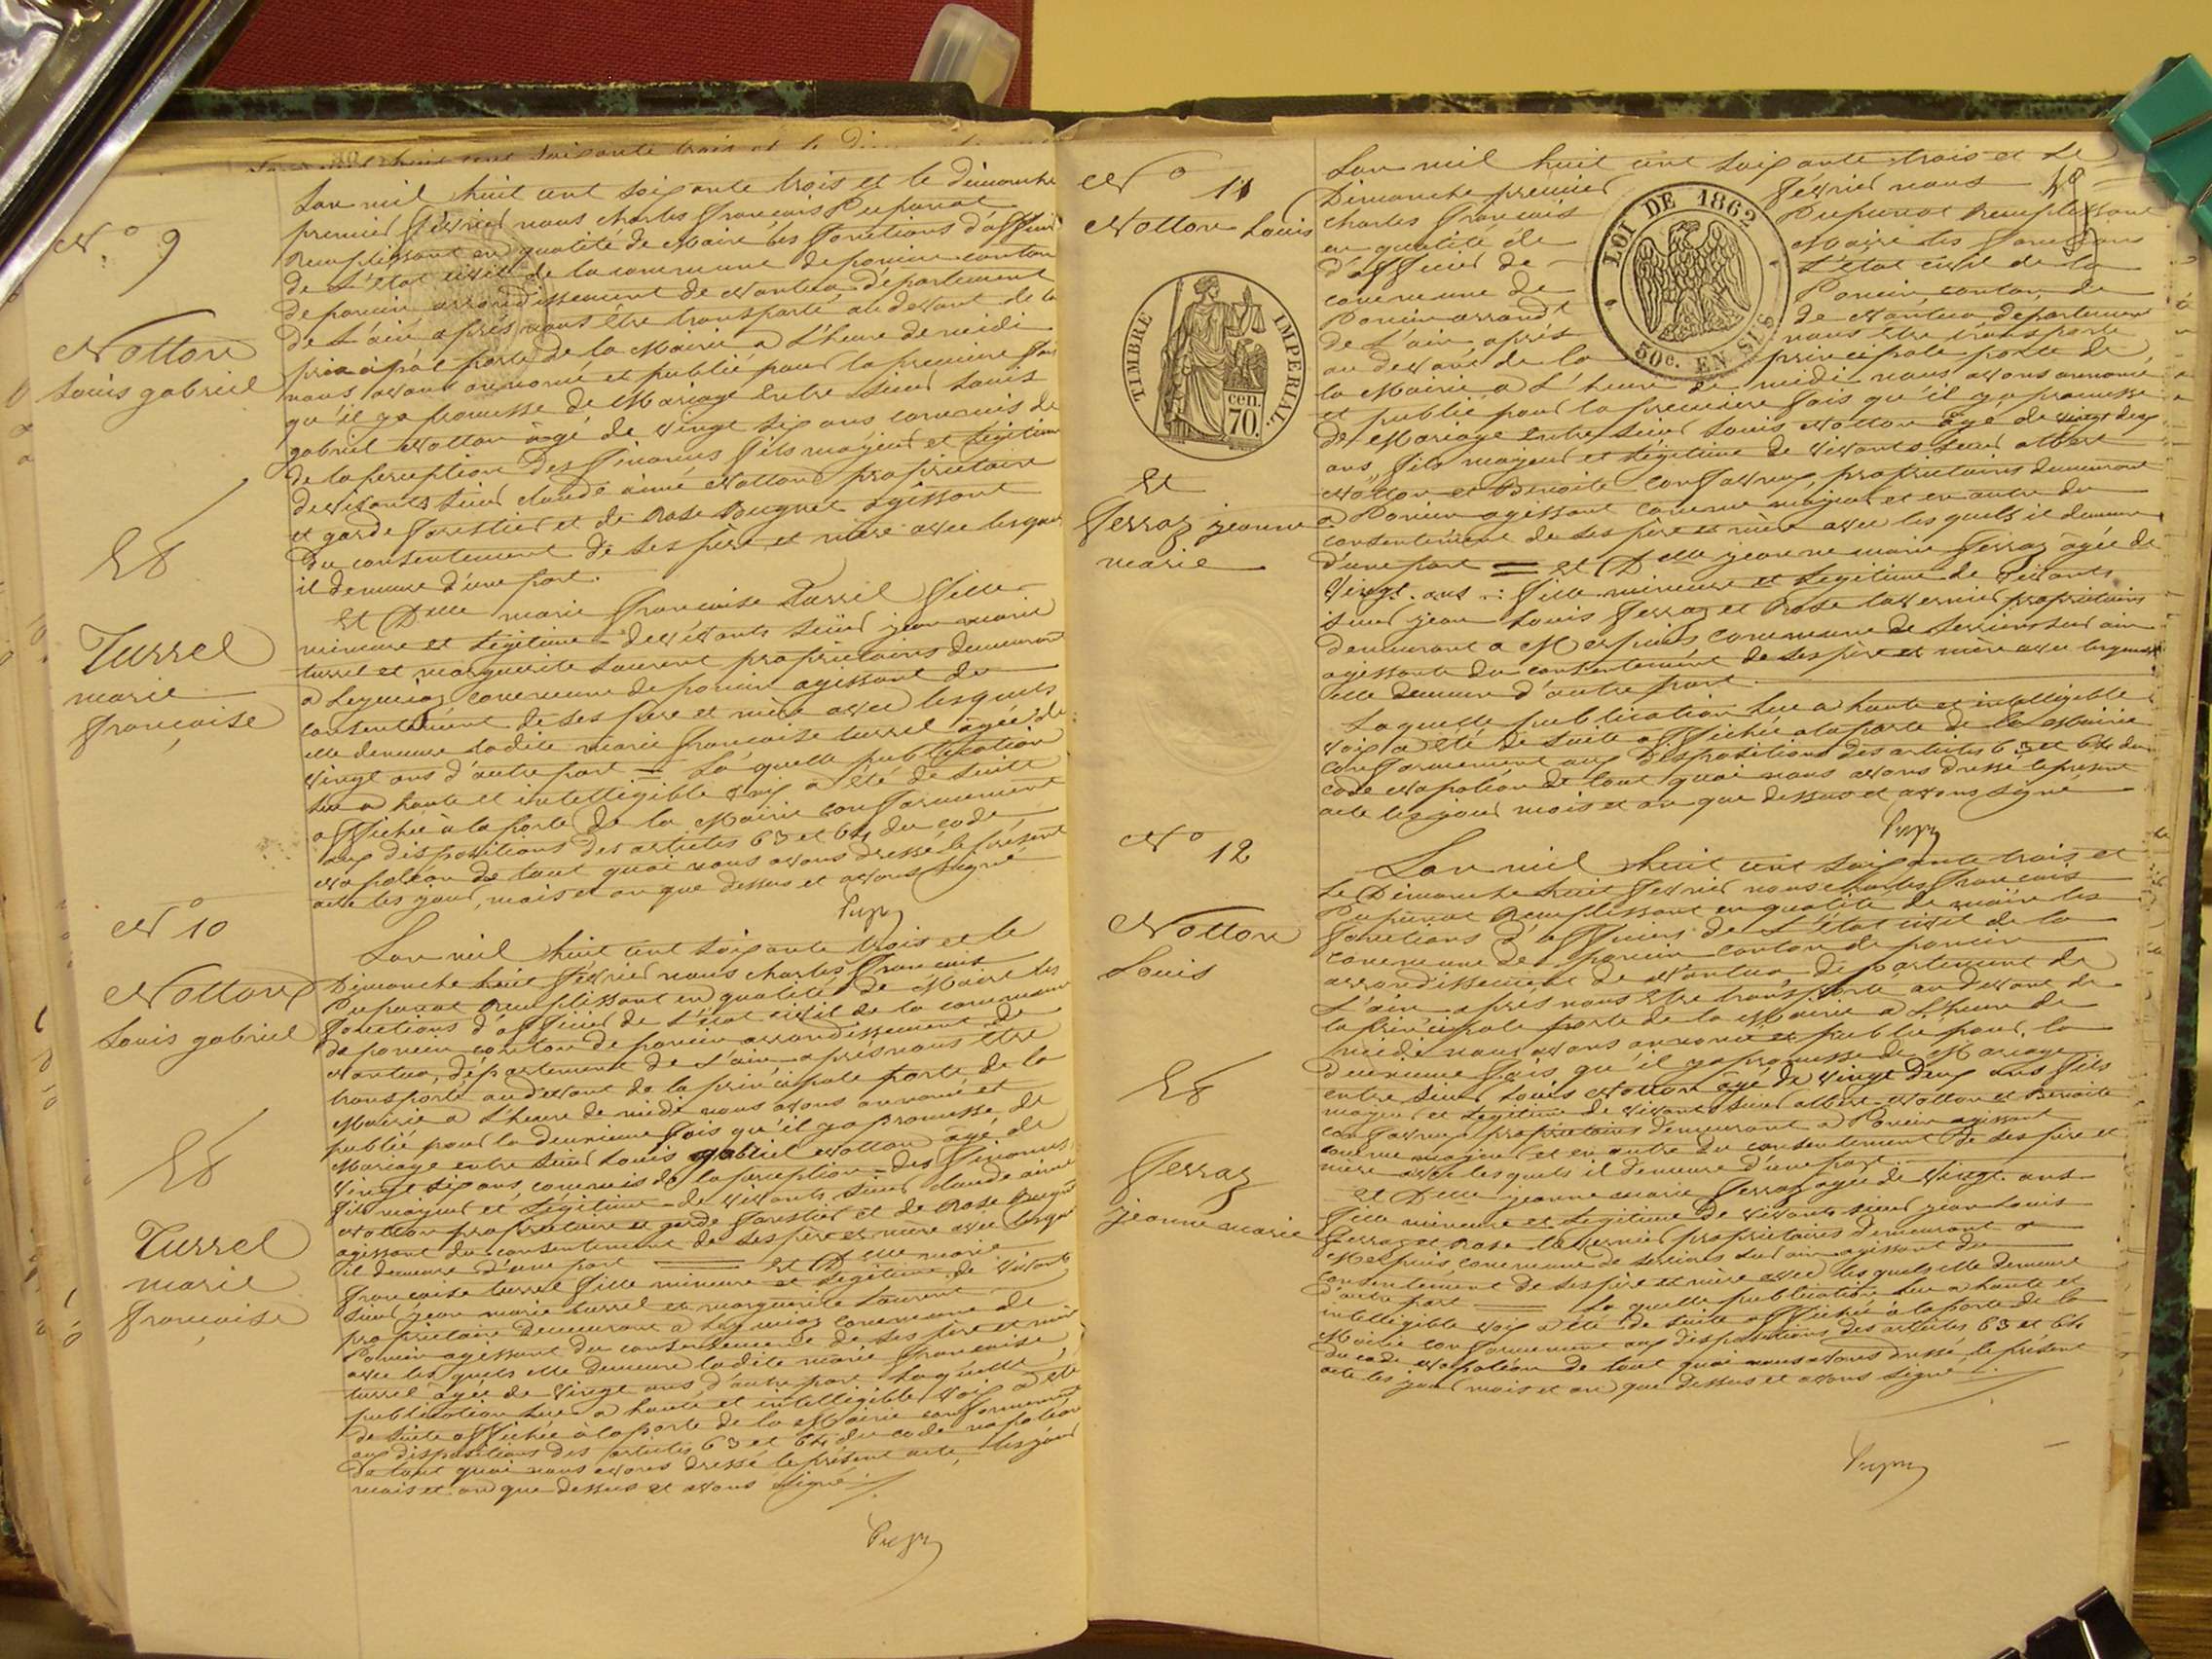 N.° 9
Notton
Louis gabriel
Et
Turrel
marie
françoise
L'an mil huit cent soixante trois et le dimanche
premier février nous charles françois Pupunat
remplissant en qualité de Maire les fonctions d'officier
de L'état civil de la commune de poncin canton
de poncin arrondissement de Nantua département
de L'ain après nous être transporté au devant de la
principal porte de la Mairie a L'heure de midi
nous avons annoncé et publié pour la première fois
qu'il y a promesse de Mariage entre sieur Louis
gabriel Notton âgé de vingt six ans commis de
de la perception des finances fils majeur et légitime
de vivants sieur claude aimé Notton propriétaire
et garde forestier et de Rose Bugnet agissant
du consentement de ses père et mère avec lesquels
il demeure d'une part.
Et Delle marie françoise Turrel fille
mineure et légitime de vivants sieur jean marie
turrel et marguerite Laurent propriétaires demeurant
a Leymiaz commune de poncin agissant du
consentement de ses père et mère avec lesquels
elle demeure ladite marie françoise turrel âgée de
vingt ans d'autre part = La quelle publication
lue a haute et intelligible voix a été de suite
affichée à la porte de la Mairie conformément
aux dispositions des articles 63 et 64 du code
napoléon de tout quoi nous avons dressé le présent
acte les jour, mois et an que dessus et avons signé
N° 10
Notton
Louis gabriel
Et
Turrel
marie
françoise
L'an mil huit cent soixante trois et le
Dimanche huit février nous charles françois
Pupunat remplissant en qualité de Maire les
fonctions d'officier de L'état civil de la commune
de poncin canton de poncin arrondissement de
Nantua, département de L'ain après nous être
transporté au devant de la principale porte de la
Mairie a L'heure de midi nous avons annoncé et
publié pour la deuxième fois qu'il y a promesse de
Mariage entre sieur Louis gabriel Notton âgé de
vingt six ans, commis de la perception des finances
fils majeur et légitime de vivants sieur claude aimé
Notton propriétaire et garde forestier et de Rose Bugnet
agissant du consentement de ses père et mère avec lesquels
il demeure d'une part = Et Delle marie
françoise turrel fille mineure et légitime de vivants
sieur jean marie turrel et marguerite Laurent
propriétaire demeurant a Leymiaz commune de
Poncin agissant du consentement de ses père et mère
avec les quels elle demeure ladite marie françoise
turrel âgée de vingt ans d'autre part Laquelle
publication lue a haute et intelligible voix a été
de suite affichée à la porte de la Mairie conformément
aux dispositions des articles 63 et 64 du code napoléon
de tout quoi nous avons dressé le présent acte, les jour
mois et an que dessus et avons signé
N° 11
Notton Louis
TIMBRE IMPERIAL
70 cen.
Et
Ferraz jeanne
marie
LOI DE 1862
50c. EN SUS
L'an mil huit cent soixante trois et le
Dimanche premier février nous
charles françois Pupunat remplissant
en qualité de Maire les fonctions
d'officier de L'état civil de la
commune de Poncin canton de
Poncin arrondt de Nantua département
de L'ain après nous être transporté
au devant de la principale porte de
la Mairie a L'heure de midi nous avons annoncé
et publié pour la première fois qu'il y a promesse
de Mariage entre sieur Louis Notton âgé de vingt deux
ans, fils majeur et légitime de vivants sieur albert
Notton et Benoite Confavreux, propriétaires demeurant
a Poncin agissant comme majeur et en outre du
consentement de ses père et mère avec les quels il demeure
d'une part = et Delle jeanne marie Ferraz âgée de
vingt ans fille mineure et légitime de vivants
sieur jean Louis Ferraz et Rose Lavernier propriétaires
demeurant a Merpuis commune de Serrières sur ain
agissante du consentement de ses père et mère avec lesquels
elle demeure d'autre part
Laquelle publication lue a haute et intelligible
voix a été de suite affichée a la porte de la Mairie
conformément aux dispositions des articles 63 et 64 du
code Napoléon de tout quoi nous avons dressé le présent
acte les jour mois et an que dessus et avons signé
N° 12
Notton
Louis
Et
Ferraz
jeanne marie
L'an mil huit cent soixante trois et
le Dimanche huit février nous charles françois
Pupunat Remplissant en qualité de maire les
fonctions d'officier de L'état civil de la
commune de poncin canton de poncin
arrondissement de Nantua, département de
L'ain après nous être transporté au devant de
la principale porte de la Mairie a L'heure de
midi nous avons annoncé et publié pour la
deuxième fois qu'il y a promesse de Mariage
entre sieur Louis Notton âgé de vingt deux ans fils
majeur et légitime de vivants sieur albert Notton et Benoite
confavreux propriétaires demeurant a Poncin agissant
comme majeur et en outre du consentement de ses père et
mère avec lesquels il demeure d'une part.
et Delle jeanne Marie Ferraz agée de vingt ans
fille mineure et légitime de vivants sieur jean Louis
Ferraz et Rose Lavernier propriétaires demeurant a
Merpuis commune de serrières sur ain agissant du
consentement de ses père et mère avec les quels elle demeure
d'autre part = La quelle publication lue a haute et
intelligible voix a été de suite affichée à la porte de la
Mairie conformément aux dispositions des articles 63 et 64
du code Napoléon de tout quoi nous avons dressé, le présent
acte les jour mois et an que dessus et avons signé